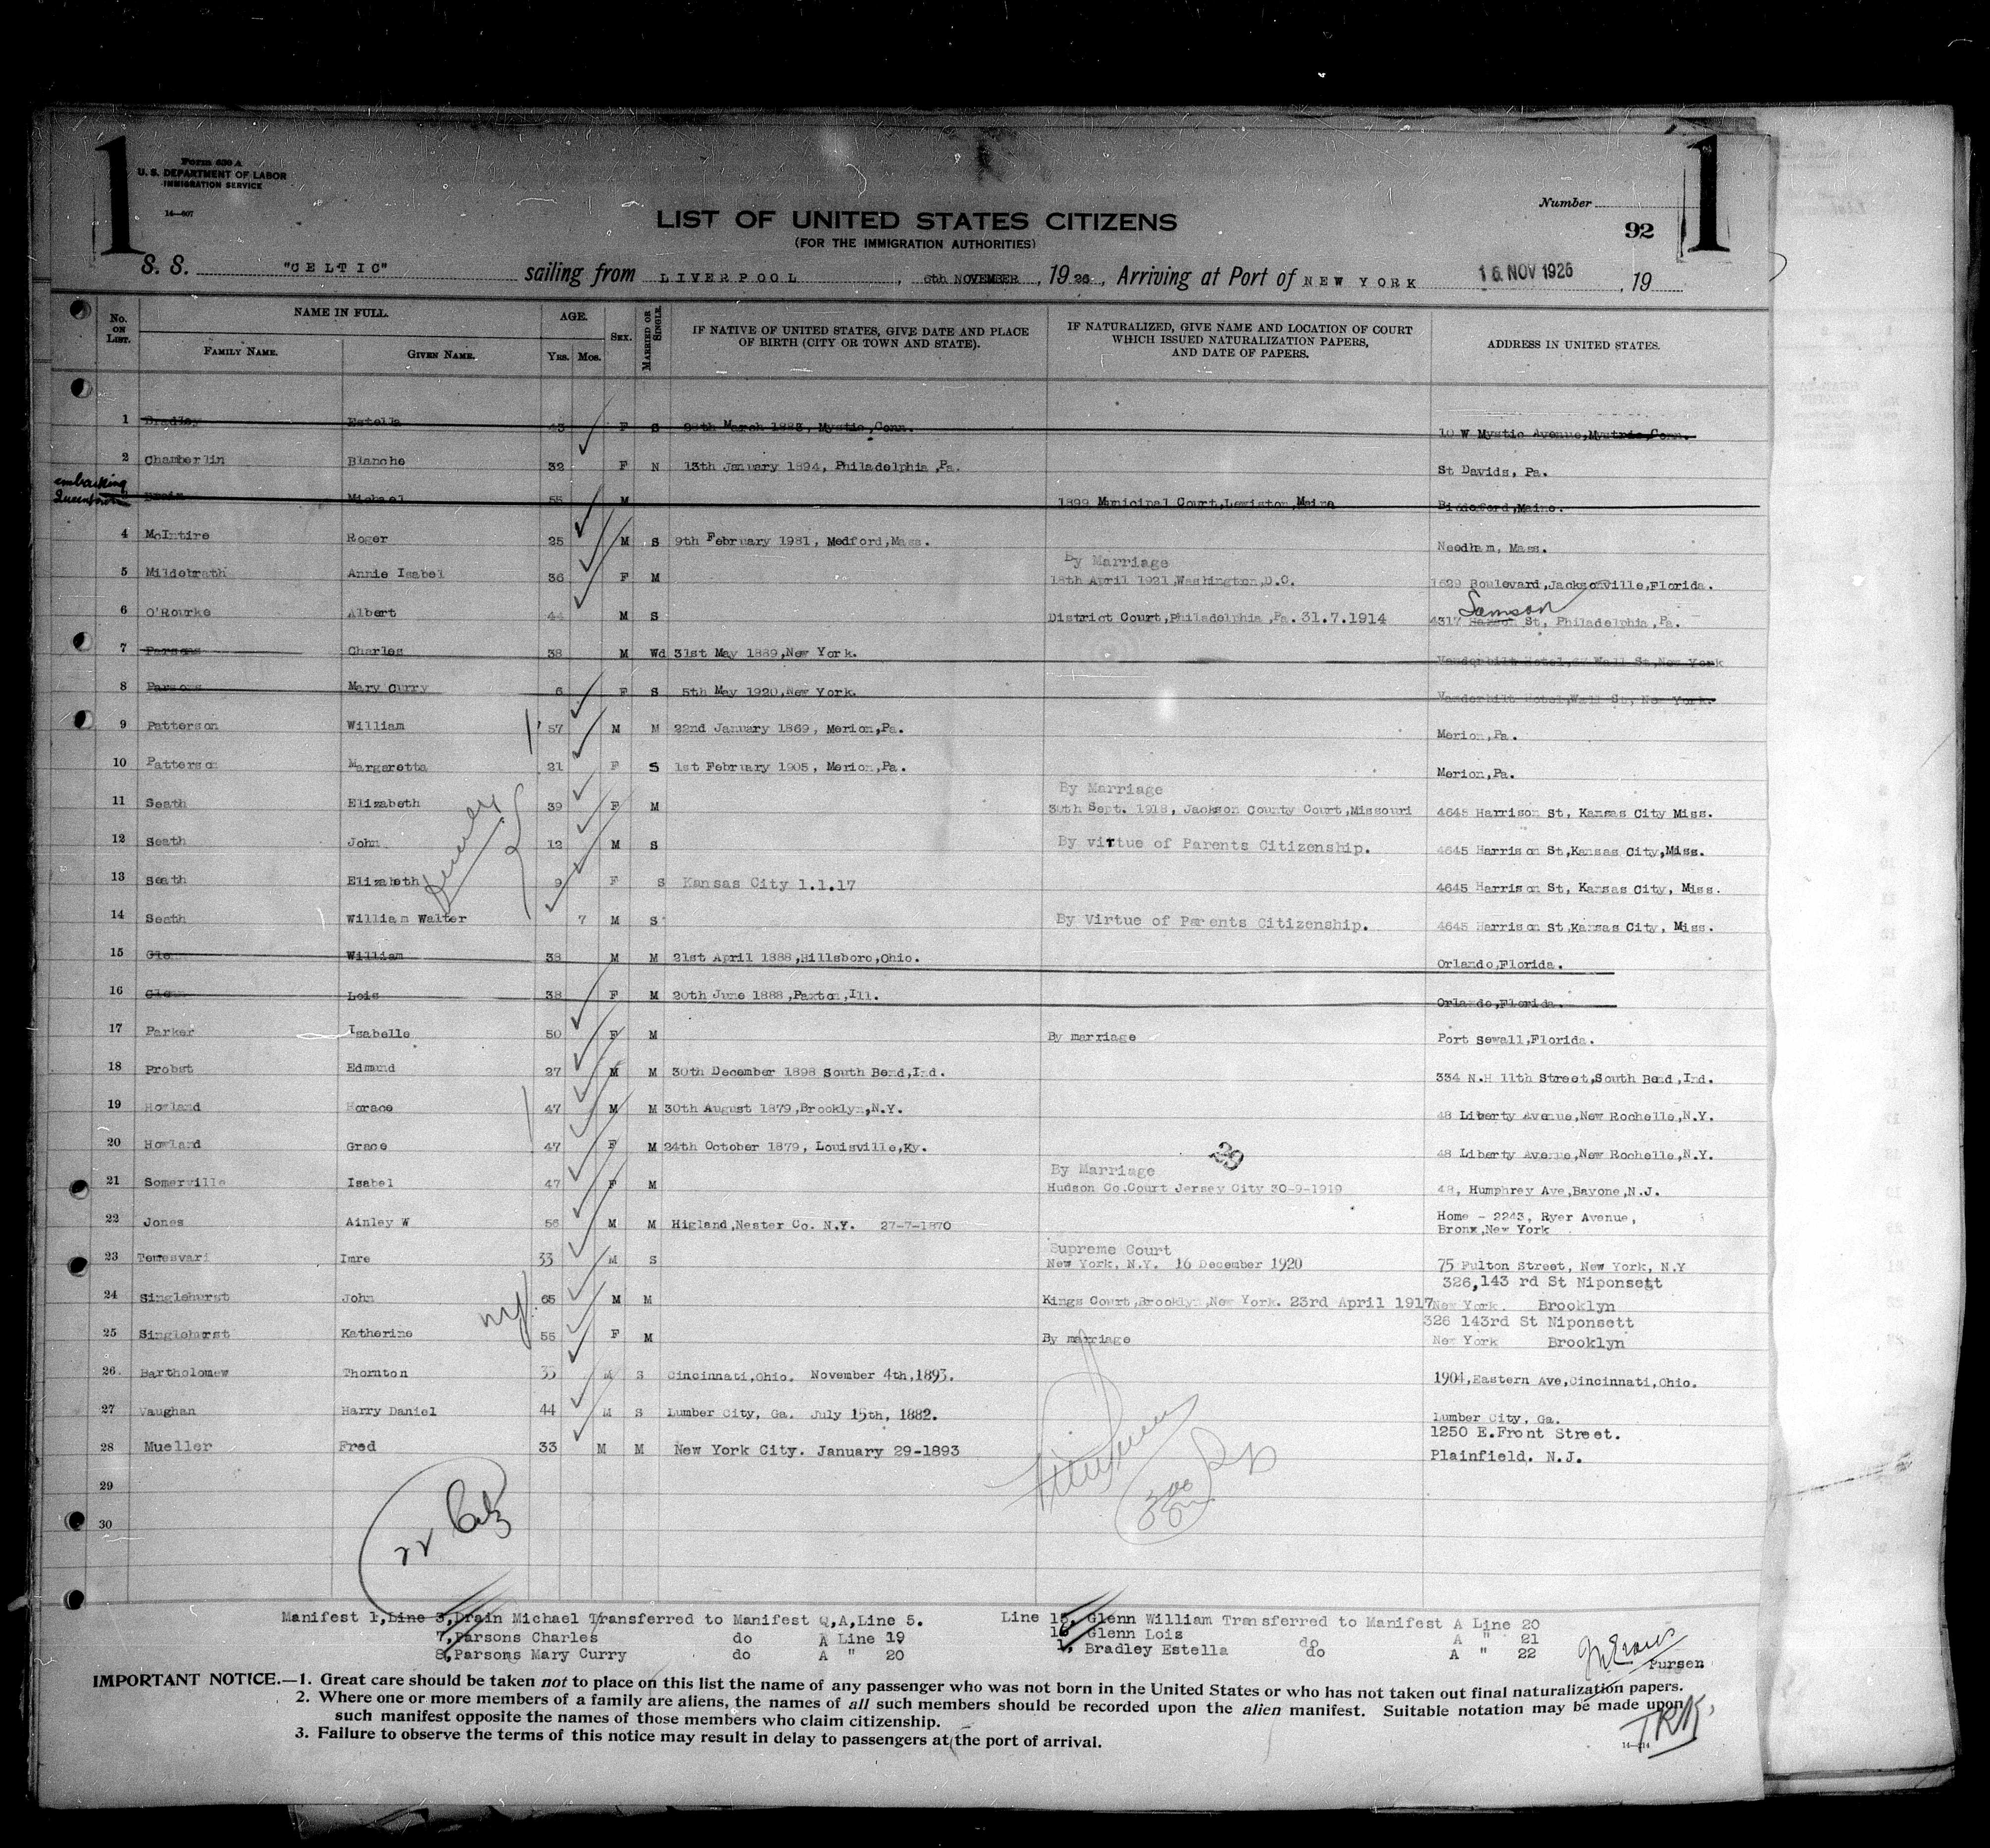 1 1
Form 630 A
U. S. DEPARTMENT OF LABOR
IMMIGRATION SERVICE
14—607
Number
LIST OF UNITED STATES CITIZENS
92
(FOR THE IMMIGRATION AUTHORITIES)
S. S. "CELTIC" sailing from LIVERPOOL, 6th NOVEMBER, 1926, Arriving at Port of NEW YORK 16 NOV 1926, 19
No. ON LIST. NAME IN FULL. FAMILY NAME. GIVEN NAME. AGE. YRS. MOS. SEX. MARRIED OR SINGLE. IF NATIVE OF UNITED STATES, GIVE DATE AND PLACE OF BIRTH (CITY OR TOWN AND STATE). IF NATURALIZED, GIVE NAME AND LOCATION OF COURT WHICH ISSUED NATURALIZATION PAPERS, AND DATE OF PAPERS. ADDRESS IN UNITED STATES.
1 Bradley Estella 43 F S March 1883, Mystic,Conn. 10 W Mystic Avenue,Mystric,Conn.
2 Chamberlin Blanche 32 F N 13th January 1894, Philadelphia,Pa. St Davids, Pa.
embarking Queenstown
3 Drain Michael 55 M 1899 Municipal Court,Lewiston,Maine Biddeford,Maine.
4 McIntire Roger 25 M S 9th February 1981, Medford,Mass. Needham, Mass.
5 Mildebrath Annie Isabel 36 F M By Marriage 18th April 1921,Washington,D.C. 1629 Boulevard,Jacksonville,Florida.
6 O'Rourke Albert 44 M S District Court,Philadelphia,Pa. 31.7.1914 4317 Samson St, Philadelphia,Pa.
7 Parsons Charles 38 M Wd 31st May 1889,New York. Vanderbilt Hotel, Wall St,New York
8 Parsons Mary Curry 6 F S 5th May 1920,New York. Vanderbilt Hotel,Wall St, New York.
9 Patterson William 57 M M 22nd January 1869, Merion,Pa. Merion,Pa.
10 Patterson Margaretta 21 F S 1st February 1905, Merion,Pa. Merion,Pa.
11 Seath Elizabeth 39 F M By Marriage 30th Sept. 1918, Jackson County Court,Missouri 4645 Harrison St, Kansas City Miss.
12 Seath John 12 M S By virtue of Parents Citizenship. 4645 Harrison St,Kansas City,Miss.
13 Seath Elizabeth 9 F S Kansas City 1.1.17 4645 Harrison St, Kansas City, Miss.
14 Seath William Walter 7 M S By Virtue of Parents Citizenship. 4645 Harrison St,Kansas City, Miss.
15 Glenn William 38 M M 21st April 1888,Hillsboro,Ohio. Orlando,Florida.
16 Glenn Lois 38 F M 20th June 1888,Paxton,Ill. Orlando,Florida.
17 Parker Isabelle 50 F M By marriage Port Sewall,Florida.
18 Probst Edmund 27 M M 30th December 1898 South Bend,Ind. 334 N.H 11th Street,South Bend,Ind.
19 Howland Horace 47 M M 30th August 1879,Brooklyn,N.Y. 48 Liberty Avenue,New Rochelle,N.Y.
20 Howland Grace 47 F M 24th October 1879, Louisville,Ky. 48 Liberty Avenue,New Rochelle,N.Y.
21 Somerville Isabel 47 F M By Marriage Hudson Co.Court Jersey City 30-9-1919 48, Humphrey Ave,Bayone,N.J.
22 Jones Ainley W 56 M M Higland,Nester Co. N.Y. 27-7-1870 Home - 2243, Ryer Avenue, Bronx,New York
23 Temesvari Imre 33 M S Supreme Court New York, N.Y. 16 December 1920 75 Fulton Street, New York, N.Y
24 Singlehurst John 65 M M Kings Court,Brooklyn,New York. 23rd April 1917 326,143 rd St Niponsett New York. Brooklyn
25 Singlehurst Katherine 55 F M By marriage 326 143rd St Niponsett New York Brooklyn
26. Bartholomew Thornton 33 M S Cincinnati,Ohio. November 4th,1893. 1904,Eastern Ave,Cincinnati,Ohio.
27 Vaughan Harry Daniel 44 M S Lumber City, Ga. July 15th, 1882. Lumber City, Ga.
28 Mueller Fred 33 M M New York City. January 29-1893 1250 E.Front Street. Plainfield. N.J.
29
30
Manifest 1,Line 3,Drain Michael Transferred to Manifest Q,A,Line 5. Line 15, Glenn William Transferred to Manifest A Line 20
7,Parsons Charles do A Line 19 16 Glenn Lois do A " 21
8,Parsons Mary Curry do A " 20 1, Bradley Estella do A " 22
Purser
IMPORTANT NOTICE.—1. Great care should be taken not to place on this list the name of any passenger who was not born in the United States or who has not taken out final naturalization papers.
2. Where one or more members of a family are aliens, the names of all such members should be recorded upon the alien manifest. Suitable notation may be made upon
such manifest opposite the names of those members who claim citizenship.
3. Failure to observe the terms of this notice may result in delay to passengers at the port of arrival.